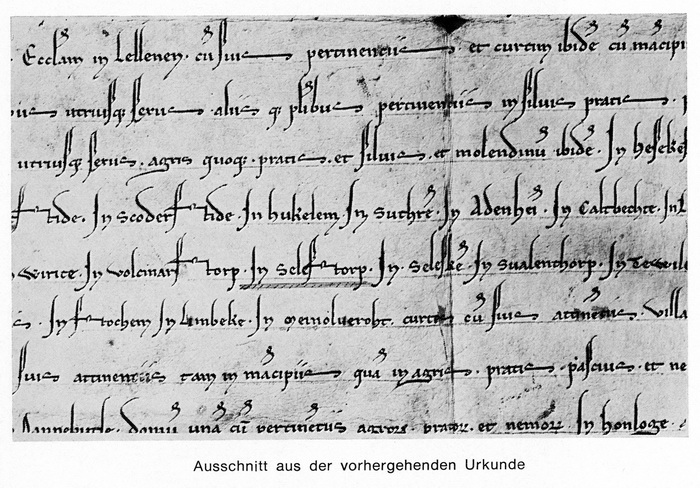 Ecclam in Lellenen. cū suis pertinentiis . et curtim ibidē cū
utriusq; sexus . aliis q; plibus pertinentiis in silvis pratis .
utriusq; sexus . agris quoq; . pratis . et silvis . et molendinū ibidē . In
tide . In Scoderstide . In hukelem . In Suthrē . In Adenhei . In Caltbechte .
In volcmarstorp . In Selestorp . In . In Sualenthorp . In
In stochem In Limbeke . In meinolveroht . curtē cū suis attinētiis . villa
suis attinentiis tam in mācipiis quā in agris . pratis . pascuis . et ne
domū unā cū pertinētiis agror . prator . et nemor . In honloge .
Ausschnitt aus der vorhergehenden Urkunde